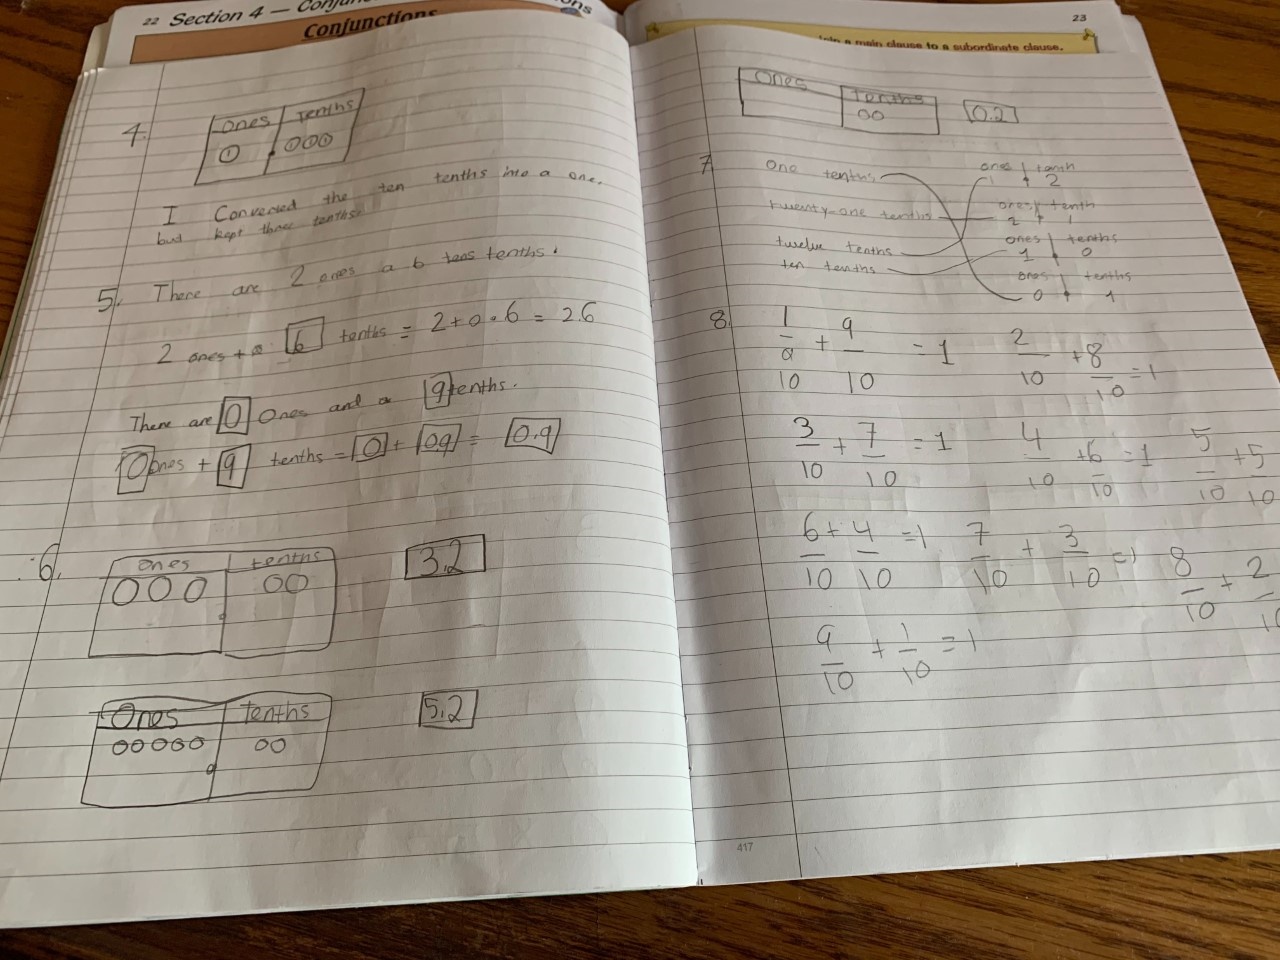 22 Section 4 —
Conjunctions
4.
Ones Tenths
I Converted the ten tenths into a one,
but kept three tenths.
5. There are 2 ones a 6 tens tenths.
2 ones + 6 tenths = 2 + 0.6 = 2.6
There are 0 Ones and a 9 tenths.
0 ones + 9 tenths = 0 + 0.9 = 0.9
6.
ones tenths
3.2
Ones Tenths
5.2
23
a main clause to a subordinate clause.
Ones Tenths
0.2
7
One tenths
one tenth
1 2
twenty-one tenths
ones tenth
2 1
twelve tenths
ones tenths
1 0
ten tenths
ones tenths
0 1
8.
1/10 + 9/10 = 1 2/10 + 8/10 = 1
3/10 + 7/10 = 1 4/10 + 6/10 = 1 5/10 + 5/10
6/10 + 4/10 = 1 7/10 + 3/10 = 1 8/10 + 2/10
9/10 + 1/10 = 1
417